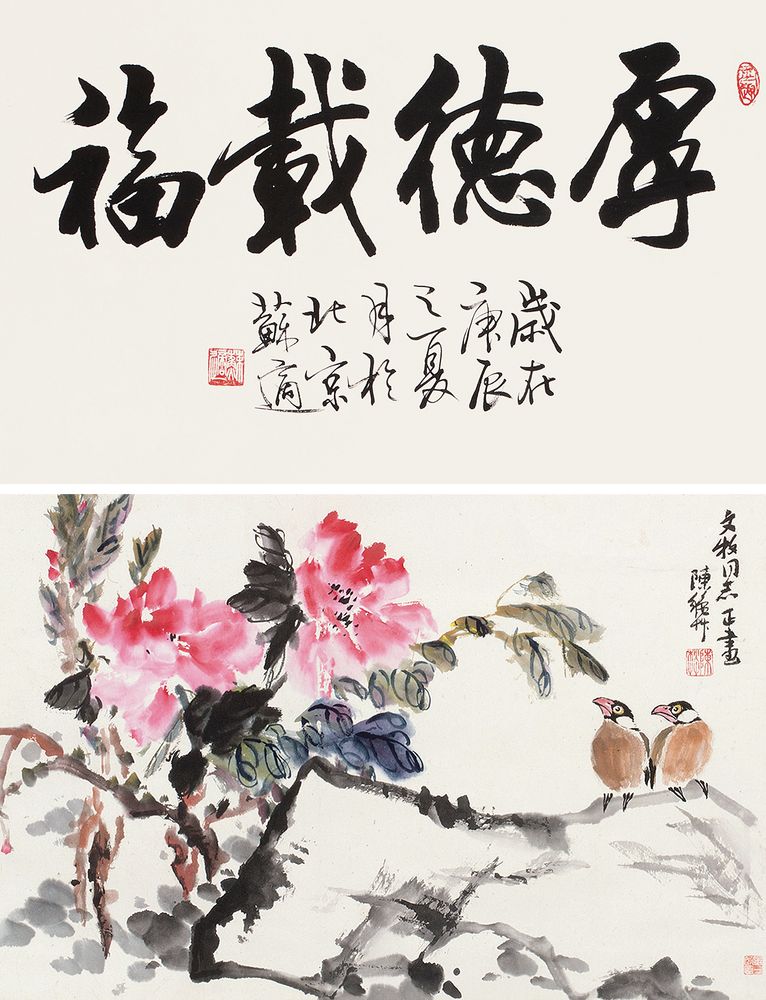 厚德載福
歲在
庚辰
之夏
月於
北京
蘇適
文牧同志正畫
陳秋艸